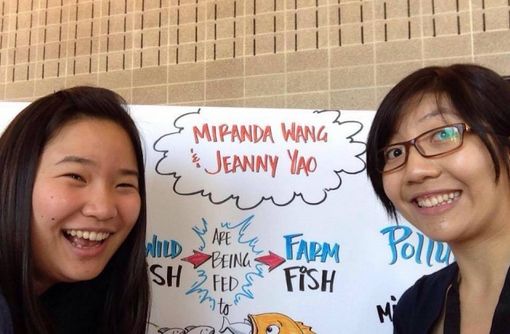 MIRANDA WANG
& JEANNY YAO
WILD
FISH
ARE
BEING
FED
to
FARM
FISH